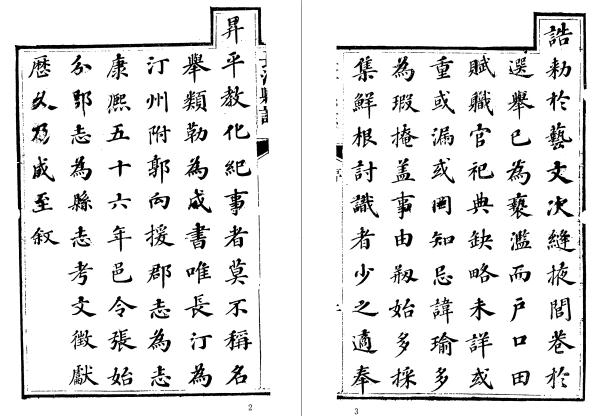 誥勅於藝文次縫掖閭巷於
選舉已為褻濫而戶口田
賦職官祀典缺略未詳或
重或漏或罔知忌諱瑜多
為瑕掩盖事由剏始多採
集鮮根討識者少之適奉
3
昇平教化紀事者莫不稱名
舉類勒為成書唯長汀為
汀州附郭向援郡志為志
康熙五十六年邑令張始
分郡志為縣志考文徵獻
歷久乃成至叙
2